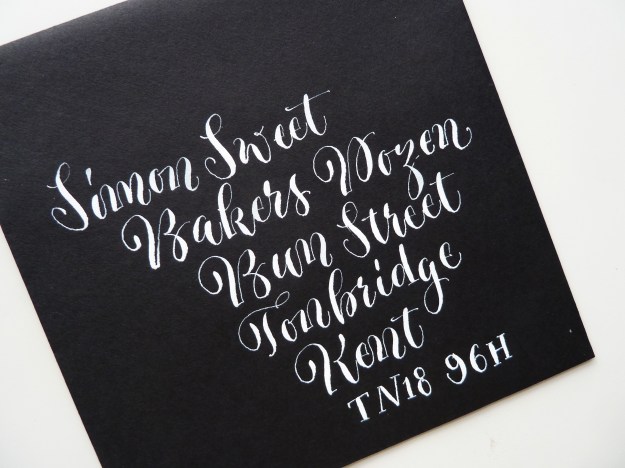 Simon Sweet
Bakers Dozen
Bun Street
Tonbridge
Kent
TN18 96H